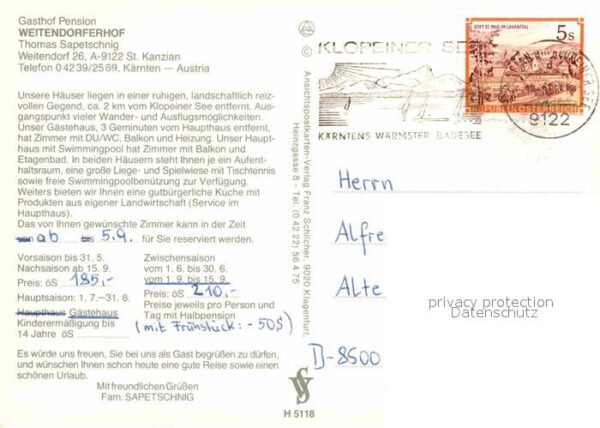 Gasthof Pension
WEITENDORFERHOF
Thomas Sapetschnig
Weitendorf 26, A-9122 St. Kanzian
Telefon 0 42 39/25 69, Kärnten — Austria
Unsere Häuser liegen in einer ruhigen, landschaftlich reiz-
vollen Gegend, ca. 2 km vom Klopeiner See entfernt. Aus-
gangspunkt vieler Wander- und Ausflugsmöglichkeiten.
Unser Gästehaus, 3 Gehminuten vom Haupthaus entfernt,
hat Zimmer mit DU/WC, Balkon und Heizung. Unser Haupt-
haus mit Swimmingpool hat Zimmer mit Balkon und
Etagenbad. In beiden Häusern steht Ihnen je ein Aufent-
haltsraum, eine große Liege- und Spielwiese mit Tischtennis
sowie freie Swimmingpoolbenützung zur Verfügung.
Weiters bieten wir Ihnen eine gutbürgerliche Küche mit
Produkten aus eigener Landwirtschaft (Service im
Haupthaus).
Das von Ihnen gewünschte Zimmer kann in der Zeit
von ab bis 5.9. für Sie reserviert werden.
Vorsaison bis 31. 5.
Nachsaison ab 15. 9.
Preis: öS 185,-
Hauptsaison: 1. 7.—31. 8.
Haupthaus Gästehaus
Kinderermäßigung bis
14 Jahre öS
Zwischensaison
vom 1. 6. bis 30. 6.
vom 1. 9. bis 15. 9.
Preis: öS 210,-
Preise jeweils pro Person und
Tag mit Halbpension
(mit Frühstück: - 50S)
Es würde uns freuen, Sie bei uns als Gast begrüßen zu dürfen,
und wünschen Ihnen schon heute eine gute Reise sowie einen
schönen Urlaub.
Mit freundlichen Grüßen
Fam. SAPETSCHNIG
© Ansichtspostkarten-Verlag Franz Schilcher, 9020 Klagenfurt,
Heinzgasse 8 - Tel. (0 42 22) 56 4 75
H 5118
KLOPEINER SEE
KÄRNTENS WÄRMSTER BADESEE
STIFT ST. PAUL IM LAVANTTAL
5s
REPUBLIK ÖSTERREICH
9122
Herrn
Alfre
Alte
D-8500
privacy protection
Datenschutz